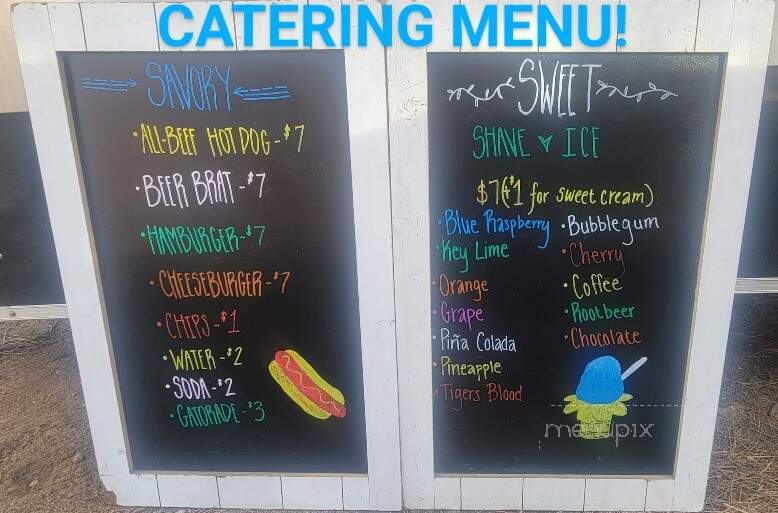 CATERING MENU!
SAVORY
• ALL-BEEF HOT DOG - $7
• BEER BRAT - $7
• HAMBURGER - $7
• CHEESEBURGER - $7
• CHIPS - $1
• WATER - $2
• SODA - $2
• GATORADE - $3
SWEET
SHAVE ICE
$7 (+$1 for sweet cream)
• Blue Raspberry
• Key Lime
• Orange
• Grape
• Piña Colada
• Pineapple
• Tigers Blood
• Bubblegum
• Cherry
• Coffee
• Rootbeer
• Chocolate
menupix